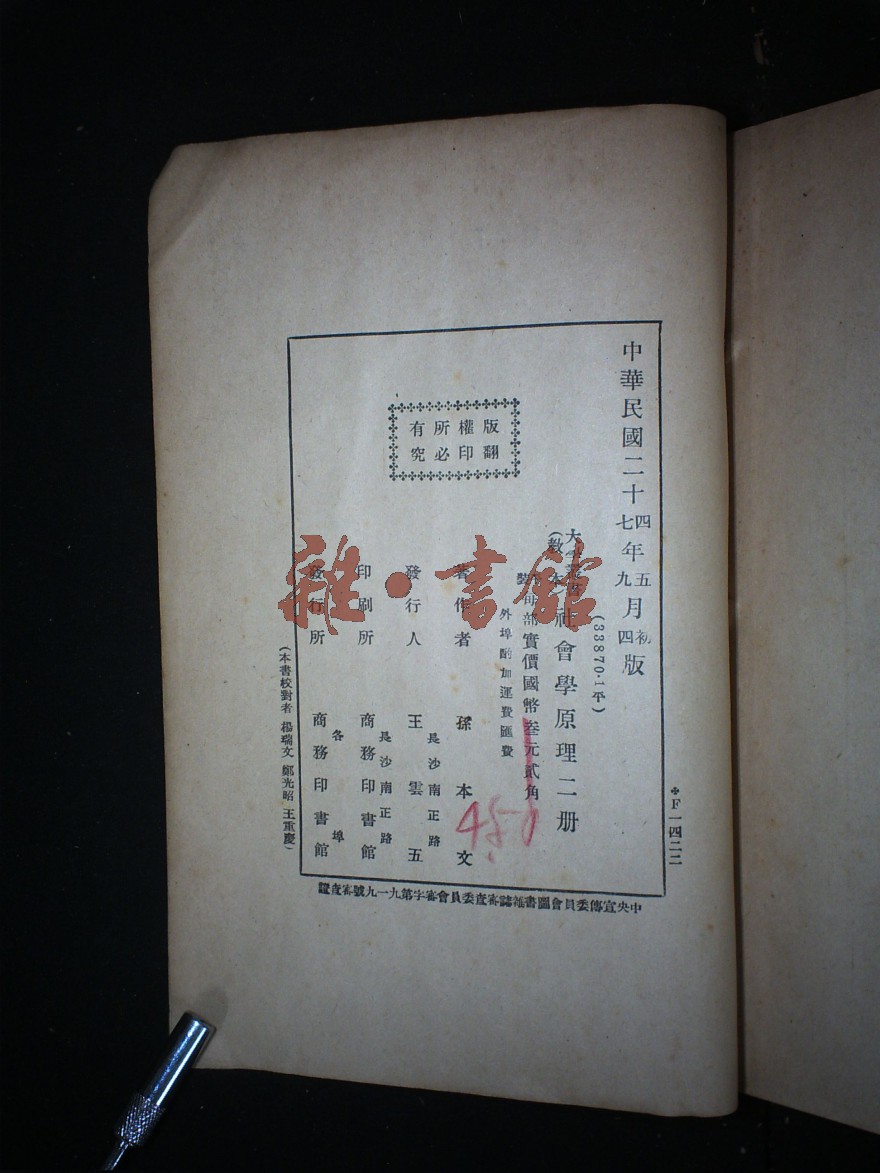 中華民國二十四年五月初版
七九四
(33870·1平)
大學叢書
(教本
社會學原理二册
每部實價國幣叁元貳角
外埠酌加運費匯費
著作者 孫本文
發行人 王雲五
長沙南正路
印刷所 商務印書館
長沙南正路
發行所 商務印書館
各埠
(本書校對者 楊瑞文 鄭光昭 王重慶)
版權所有
翻印必究
F一四二二
中央宣傳委員會圖書雜誌審查委員會審字第九一九號審查證
450
雜·書館